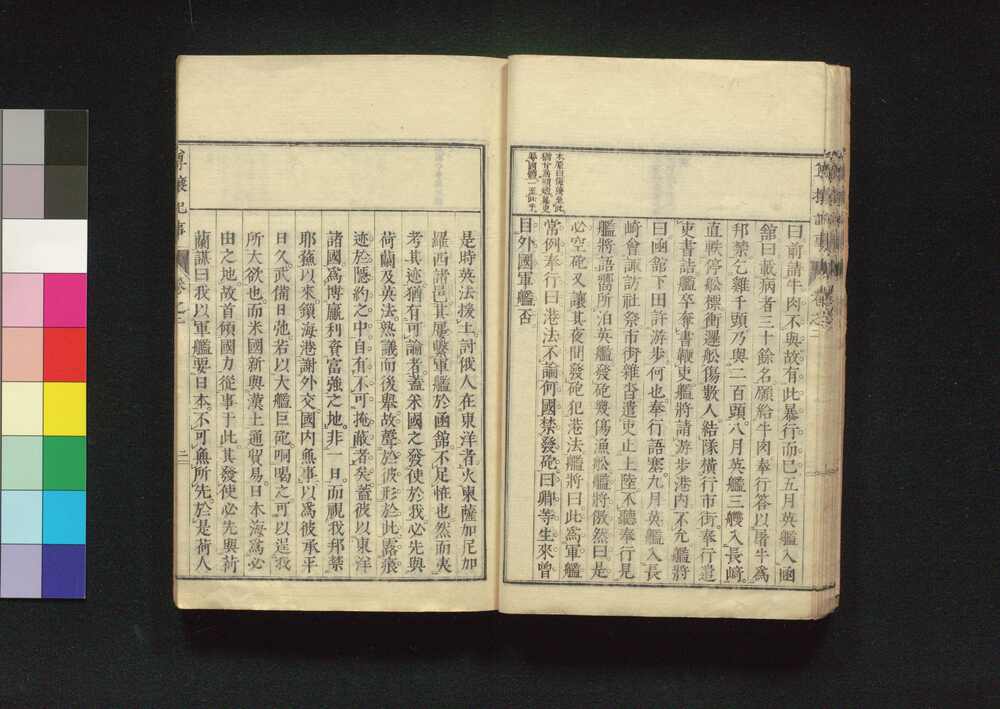 曰前請牛肉不與故有此暴行而已五月英艦入函
舘曰載病者三十餘名願給牛肉奉行答以屠牛爲
邦禁乞雞千頭乃與二百頭八月英艦三艘入長﨑
直軼停舩標衝邏舩傷數人結隊橫行市街奉行遣
吏書語艦卒奪書鞭吏艦將請游步港内不允艦將
曰函舘下田許游步何也奉行語塞九月英艦入長
﨑會諏訪社祭市街雜沓遣吏止上陸不聽奉行見
艦將語嚮所泊英艦發砲幾傷漁舩艦將傲然曰是
必空砲又讓其夜間發砲犯港法艦將曰此爲軍艦
常例奉行曰港法不論何國禁發砲曰卿等生來曾
目外國軍艦否
尊攘紀事
卷之二
是時英法援土討俄人在東洋者火柬薩加尼加
羅西諸邑其屢繫軍艦於函舘不足恠也然而夾
考其迹猶有可論者蓋米國之發使於我必先與
荷蘭及英法熟議而後擧故聲於彼形於此露痕
迹於隱約之中自有不可掩蔽者矣蓋彼以東洋
諸國爲博厖利資富强之地非一日而視我邦禁
耶蘓以來鎖海港謝外交國内無事以爲彼承平
日久武備日弛若以大艦巨砲啁喝之可以逞我
所大欲也而米國新興漢土通貿易日本海爲必
由之地故首傾國力從事于此其發使必先與荷
蘭謀曰我以軍艦要日本不可無所先於是荷人